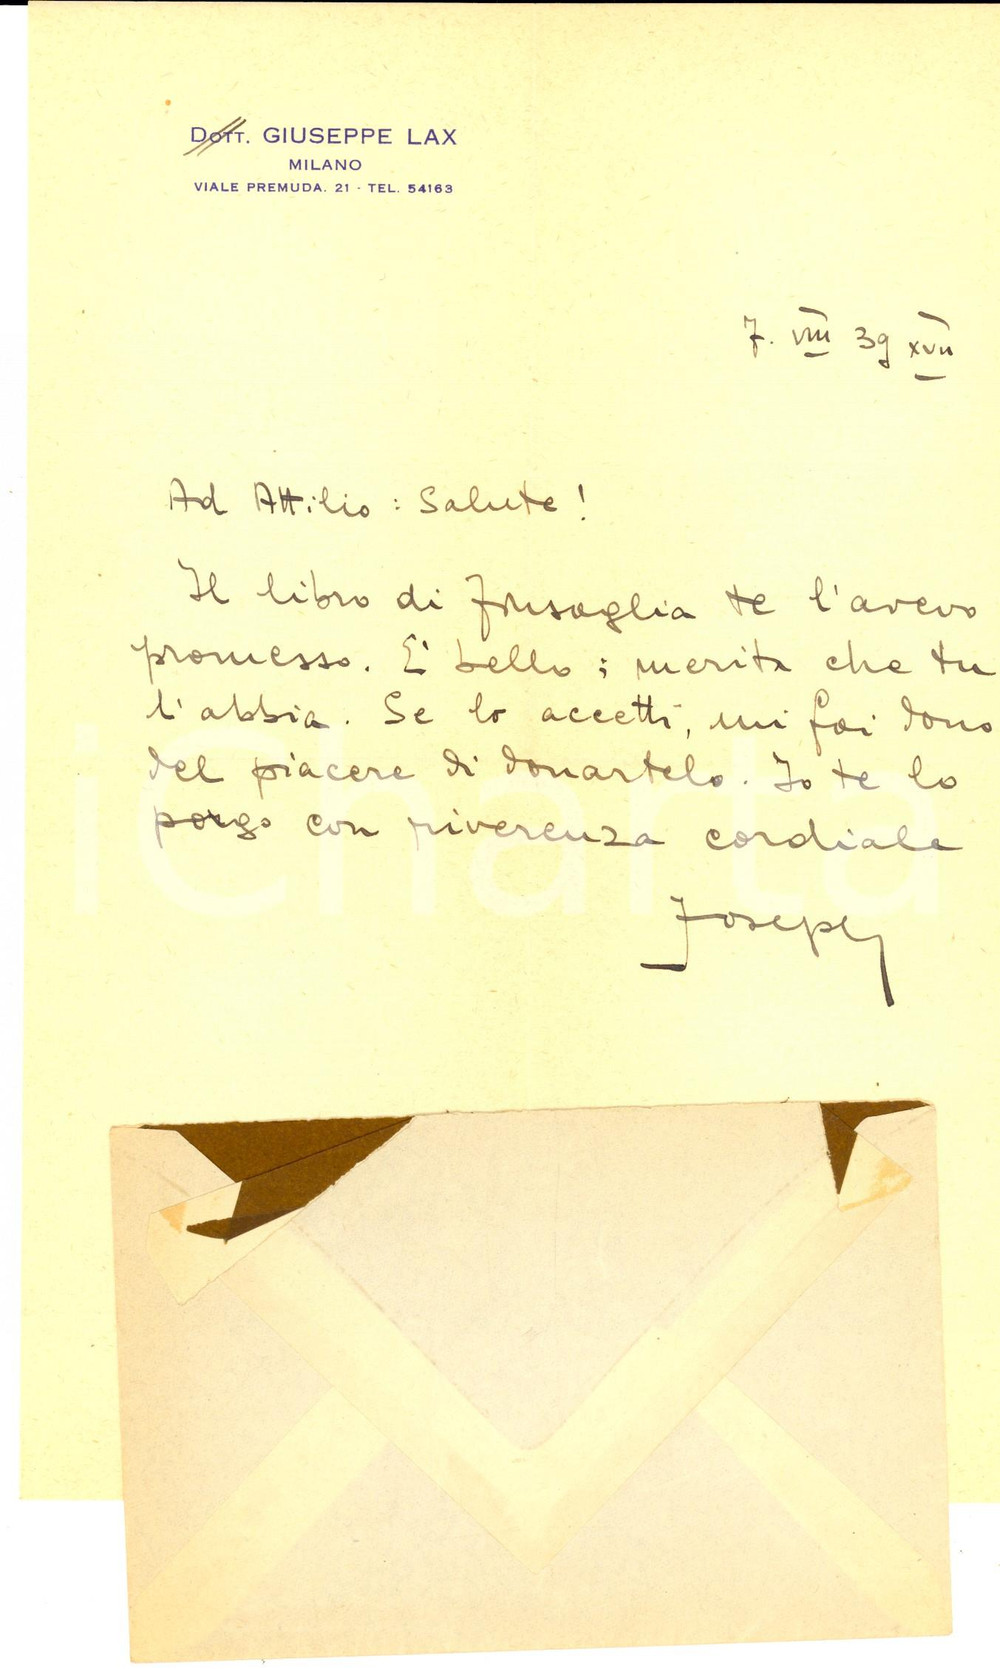 Dott. GIUSEPPE LAX
MILANO
VIALE PREMUDA. 21 - TEL. 54163
7. VIII 39 XVII
Ad Attilio : Salute !
Il libro di Frusaglia te l'avevo
promesso. E' bello ; merita che tu
l'abbia. Se lo accetti, mi fai dono
del piacere di donartelo. Io te lo
porgo con riverenza cordiale
Joseph
iCharta